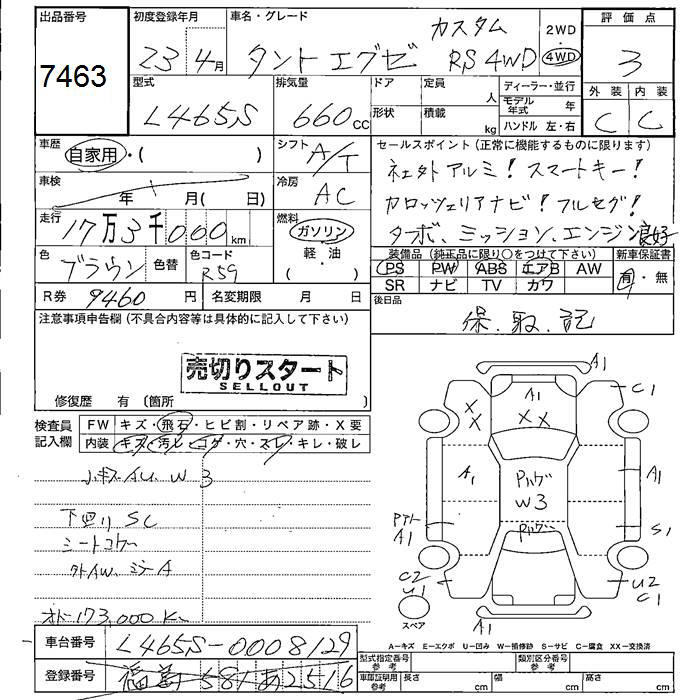 出品番号
7463
初度登録年月
23年4月
車名・グレード
カスタム
タント エグゼ RS 4WD
2WD
・
4WD
評価点
3
外装 内装
C C
型式
L465S
排気量
660cc
ドア
形状
定員
人
積載
kg
ディーラー・並行
モデル年式 年
ハンドル 左・右
車歴
自家用・( )
シフト
A/T
車検
年 月( 日)
冷房
AC
走行
17万3千000km
燃料
ガソリン
軽・油
( )
色
ブラウン
色替
色コード
R59
R券 9460円
名変期限 月 日
セールスポイント(正常に機能するものに限ります)
社外アルミ! スマートキー!
カロッツェリアナビ! フルセグ!
ターボ、ミッション、エンジン良好
装備品(純正品に限り○をつけて下さい)
新車保証書
PS PW ABS エアB AW
SR ナビ TV カワ
有・無
後日品
保、取、記
注意事項申告欄(不具合内容等は具体的に記入して下さい)
売切りスタート
SELLOUT
修復歴 有(箇所
検査員
記入欄
FW キズ・飛石・ヒビ割・リペア跡・X要
内装 キズ・汚レ・コゲ・穴・スレ・キレ・破レ
小キズAU、W 3
下回リ SC
シートコゲ
外AW、ミラーA
オドー173,000K
A1
C1
A1
XX
XX
A1
A1
W3
A1
S1
C2
U1
U2
C1
A1
スペア
A−キズ E−エクボ U−凹み W−補修跡 S−サビ C−腐食 XX−交換済
車台番号 L465S-0008129
登録番号 581 あ2516
型式指定番号
参考
類別区分番号
参考
車庫証明用
参考
長さ cm 幅 cm 高さ cm